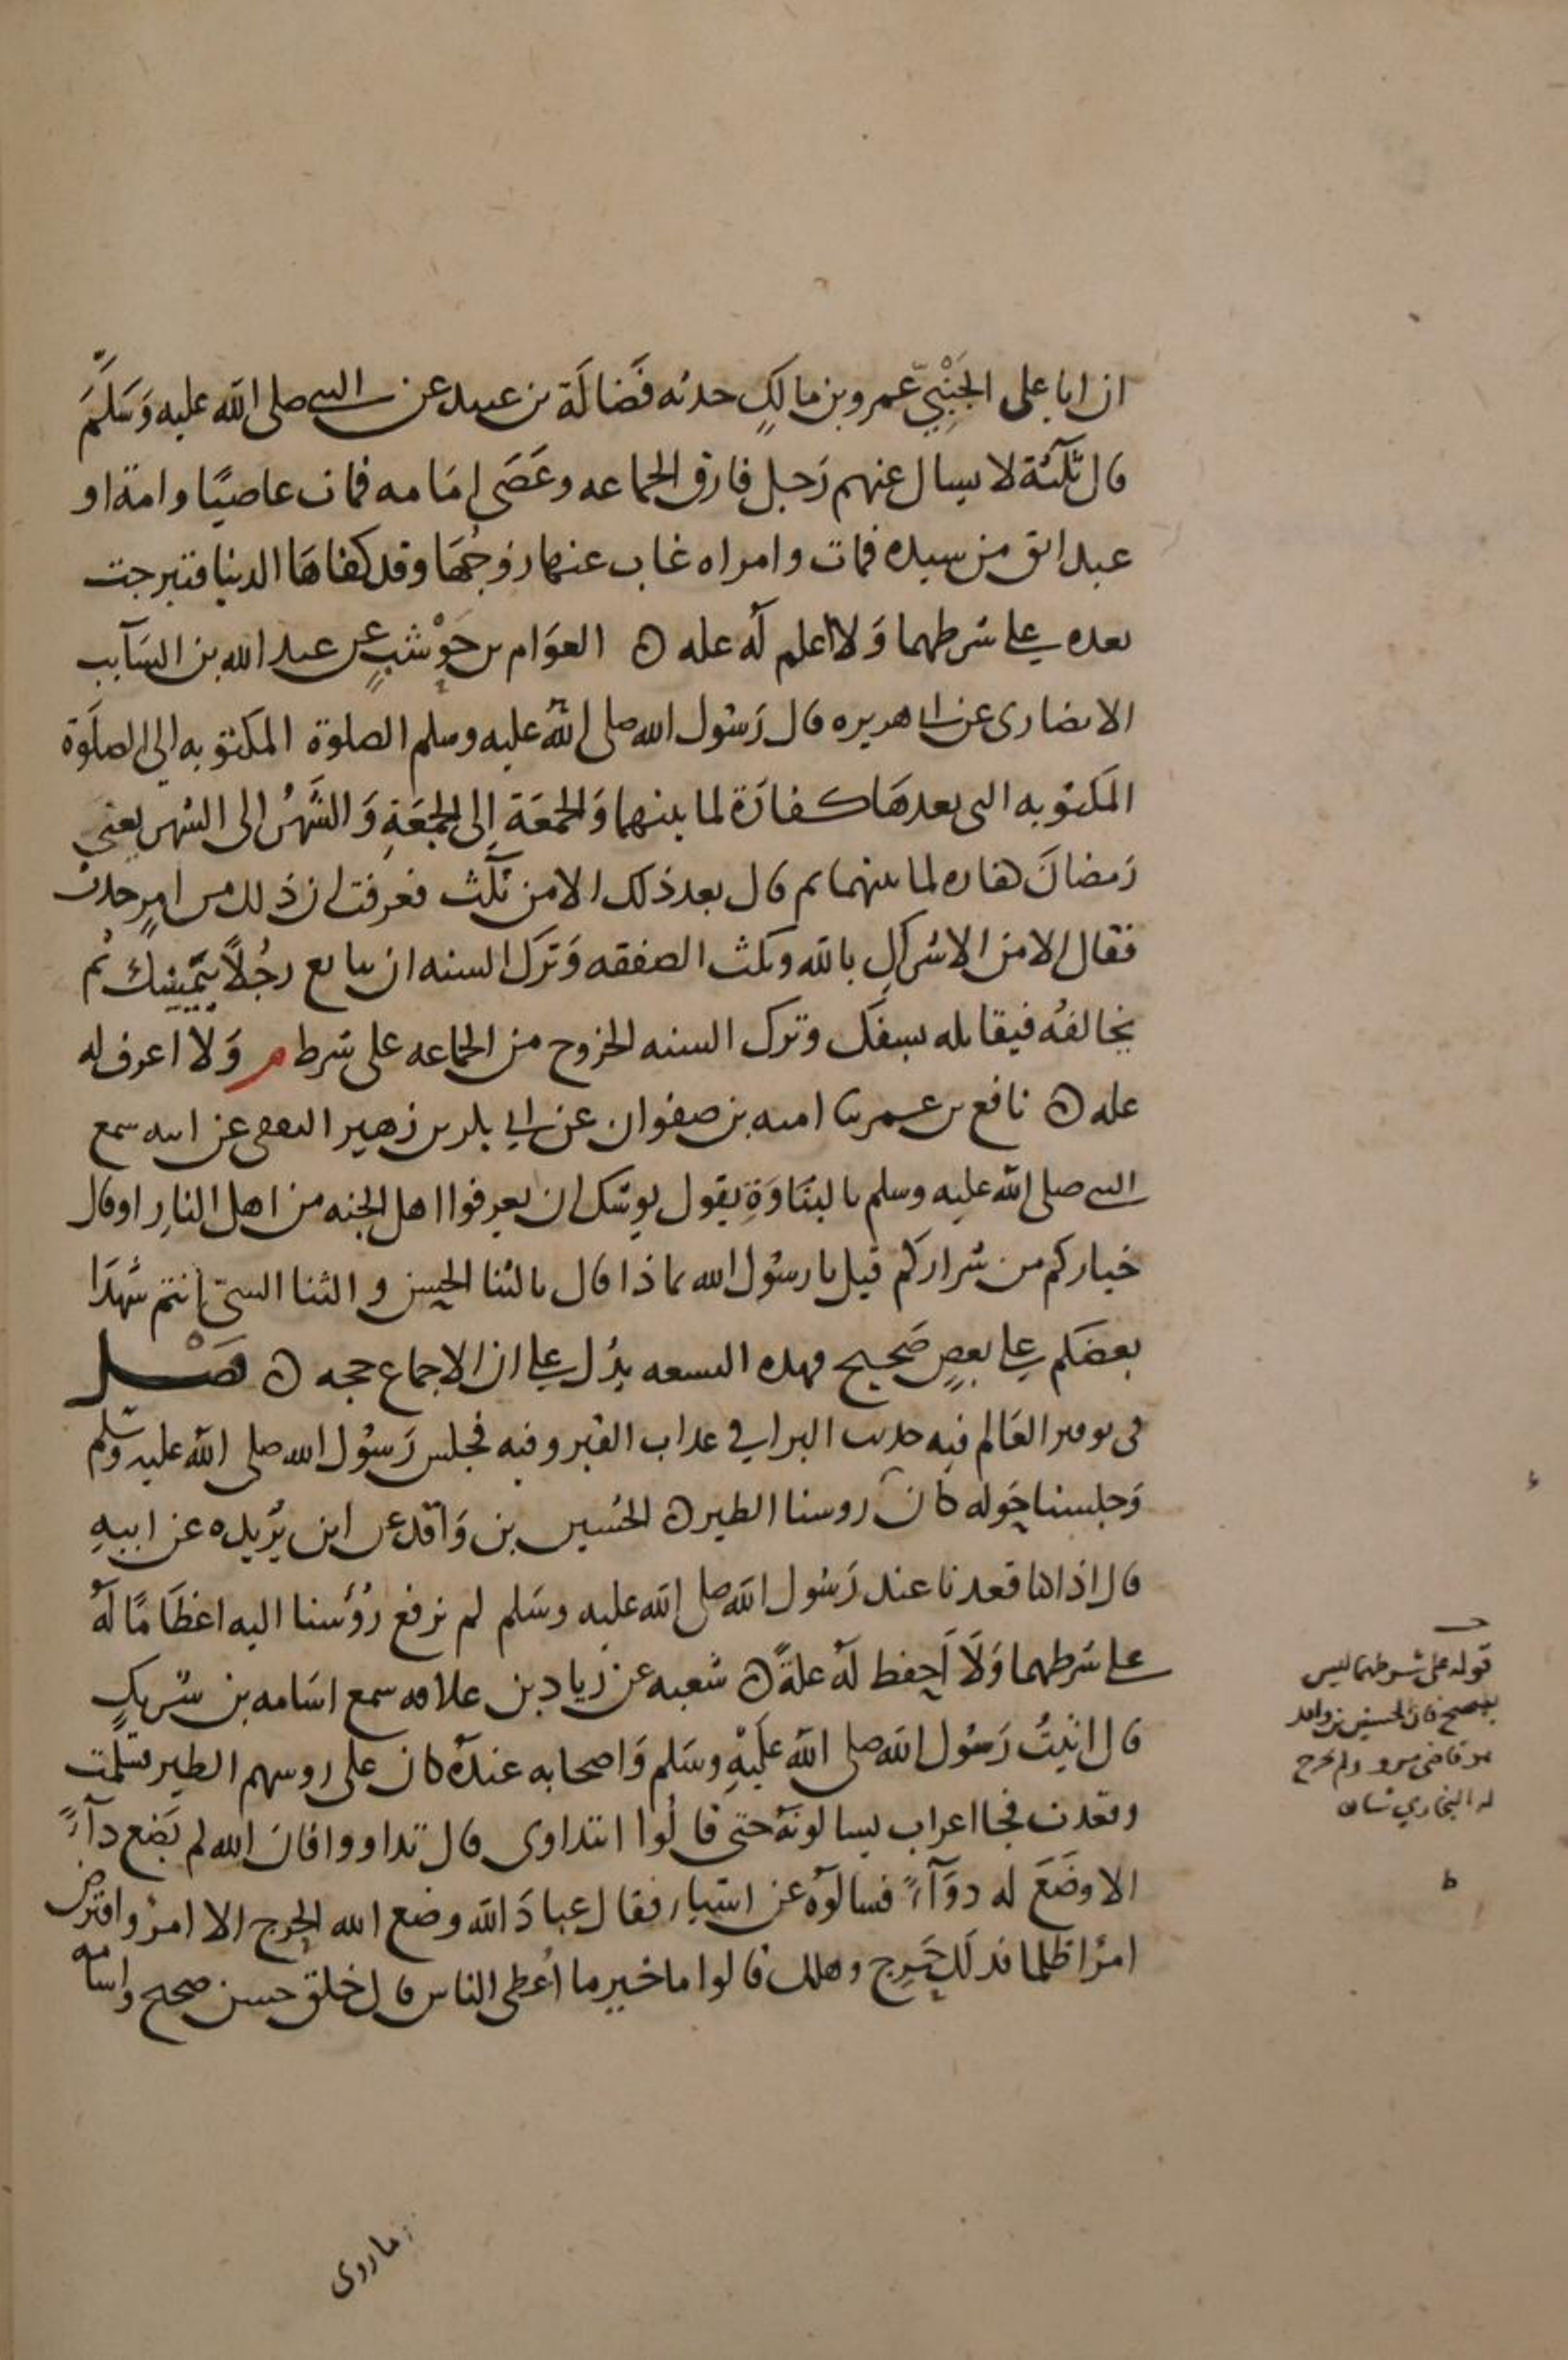 ان ابا على الجَنْبِيّ عمرو بن مالكٍ حدثه فَضالَة بن عبيد عن النبي صلى الله عليه وَسَلَّمَ
قال ثلثة لا يسال عنهم رَجل فارق الجماعه وعَصَى اِمَامه فمات عاصيًا وامة او
عبد ابق من سيده فمات وامراه غاب عنها زوجُهَا وقد كفاهَا الدنيا فتبرجت
بعده على شرطهما وَلا اعلم لهُ عله ه العوَام بن حَوْشبٍ عن عبد الله بن السَآيب
الانصارى عن ابي هريره قال رَسُول الله صلى اللهُ عليه وسلم الصلوة المكتوبه الى الصلَوٰة
المكتوبه التى بعدهَا كفارَة لما بينهما وَالجمعَة اِلى الجمعَةِ وَالشَّهْرُ الى الشهر يعني
رَمضانَ كفاره لما بينهما ثم قال بعد ذلك الا من ثلَٰث فعرفت ان ذلك من امرٍ حدث
فقال الا من الاشراكِ بالله ونكث الصفقه وَترَك السنه ان تبايع رجُلاً بيَمينك ثم
تخالفُه فيقابله بسيفك وترك السنه الخروج من الجماعه على شرط م وَلا اعرف له
عله ه نافع بن عمر ثنا اميه بن صفوان عن ابي بكر بن زهير الثقفى عن ابيه سمع
النبي صلى الله عليه وسلم بالبنَاوَةِ يقول يوشك ان تعرفوا اهل الجنه من اهل النارِ او قال
خياركم من شراركم قيل يا رسُول الله بماذا قال بالثنا الحسن والثنا السيّ انتم شهَدَا
بعضكم على بعضٍ صَحيح فهذه التسعه يدُل على ان الاجماع حجه ه فصْــل
فى توقير العَالم فيه حديث البرا في عذاب القبر وفيه فجلس رَسوُل الله صلى الله عليه وسَلم
وَجلسنا حَوله كانَ روسنا الطير ه الحُسين بن وَاقد عن ابن بُريده عن ابيهِ
قال اذا قعدنا عند رَسُول الله صلى الله عليه وسَلم لم نرفع رُؤسنا اليه اعظَامًا لهُ
على شَرطهما وَلَا اَحفظ لهُ علةً ه شعبه عن زياد بن علاقه سمع اسَامه بن شريكٍ
قال اتيتُ رَسُول الله صلى الله عَليْهِ وسَلم وَاصحابه عندهُ كان على روسهم الطير فسَلمت
وقعدت فجا اعراب يسالونهُ حتى قالُوا انتداوى قال تداووا فان الله لم يَضع دآءً
الا وضَعَ له دوَآءً فسالوُه عن اشيا فقال عبادَ الله وضع الله الحَرج الا امرُ واقترض
امرُا ظلما فذلك حَرِج وهلك قالوا ما خير ما اُعطى الناس قال خلق حسن صحيح واسامه
قوله على شرطهما ليس
بصحيح فان الحسين بن واقد
هو قاضى مرو ولم يخرج
له البخاري شيا
ط
ما روى